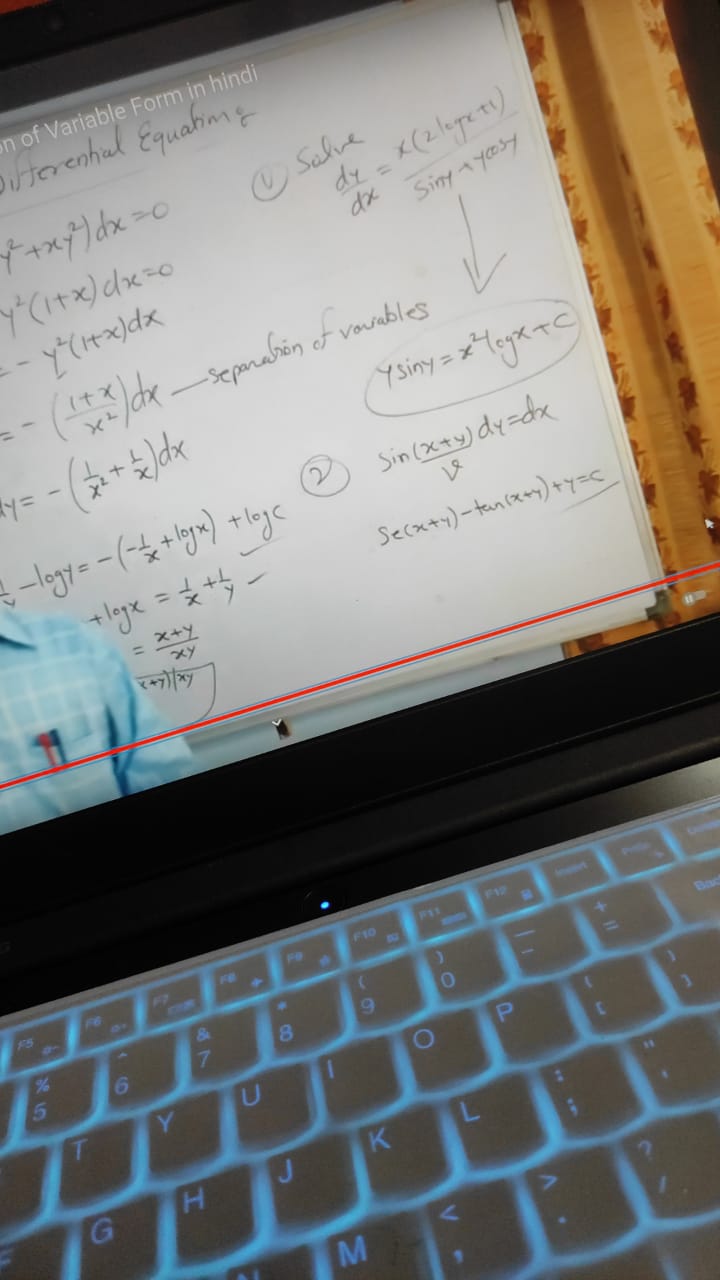 on of Variable Form in hindi
Differential Equations
y²+xy²)dx=0
y²(1+x)dx=0
=-y²(1+x)dx
=-(1+x/x²)dx—separation of variables
dy=-(1/x²+1/x)dx
-logy=-(-1/x+logx)+logc
+logx=1/x+1/y
=x+y/xy
x+y)/xy
① Solve
dy/dx=x(2logx+1)/siny+ycosy
ysiny=x²logx+c
② sin(x+y)dy=dx
v
Se(x+y)-tan(x+y)+y=c
F5
F6
F7
F8
F9
F10
F11
F12
Insert
%
5
^
6
&
7
*
8
(
9
)
0
—
-
+
=
Bac
T
Y
U
I
O
P
{
[
}
]
G
H
J
K
L
:
;
"
'
M
<
,
>
.
?
/